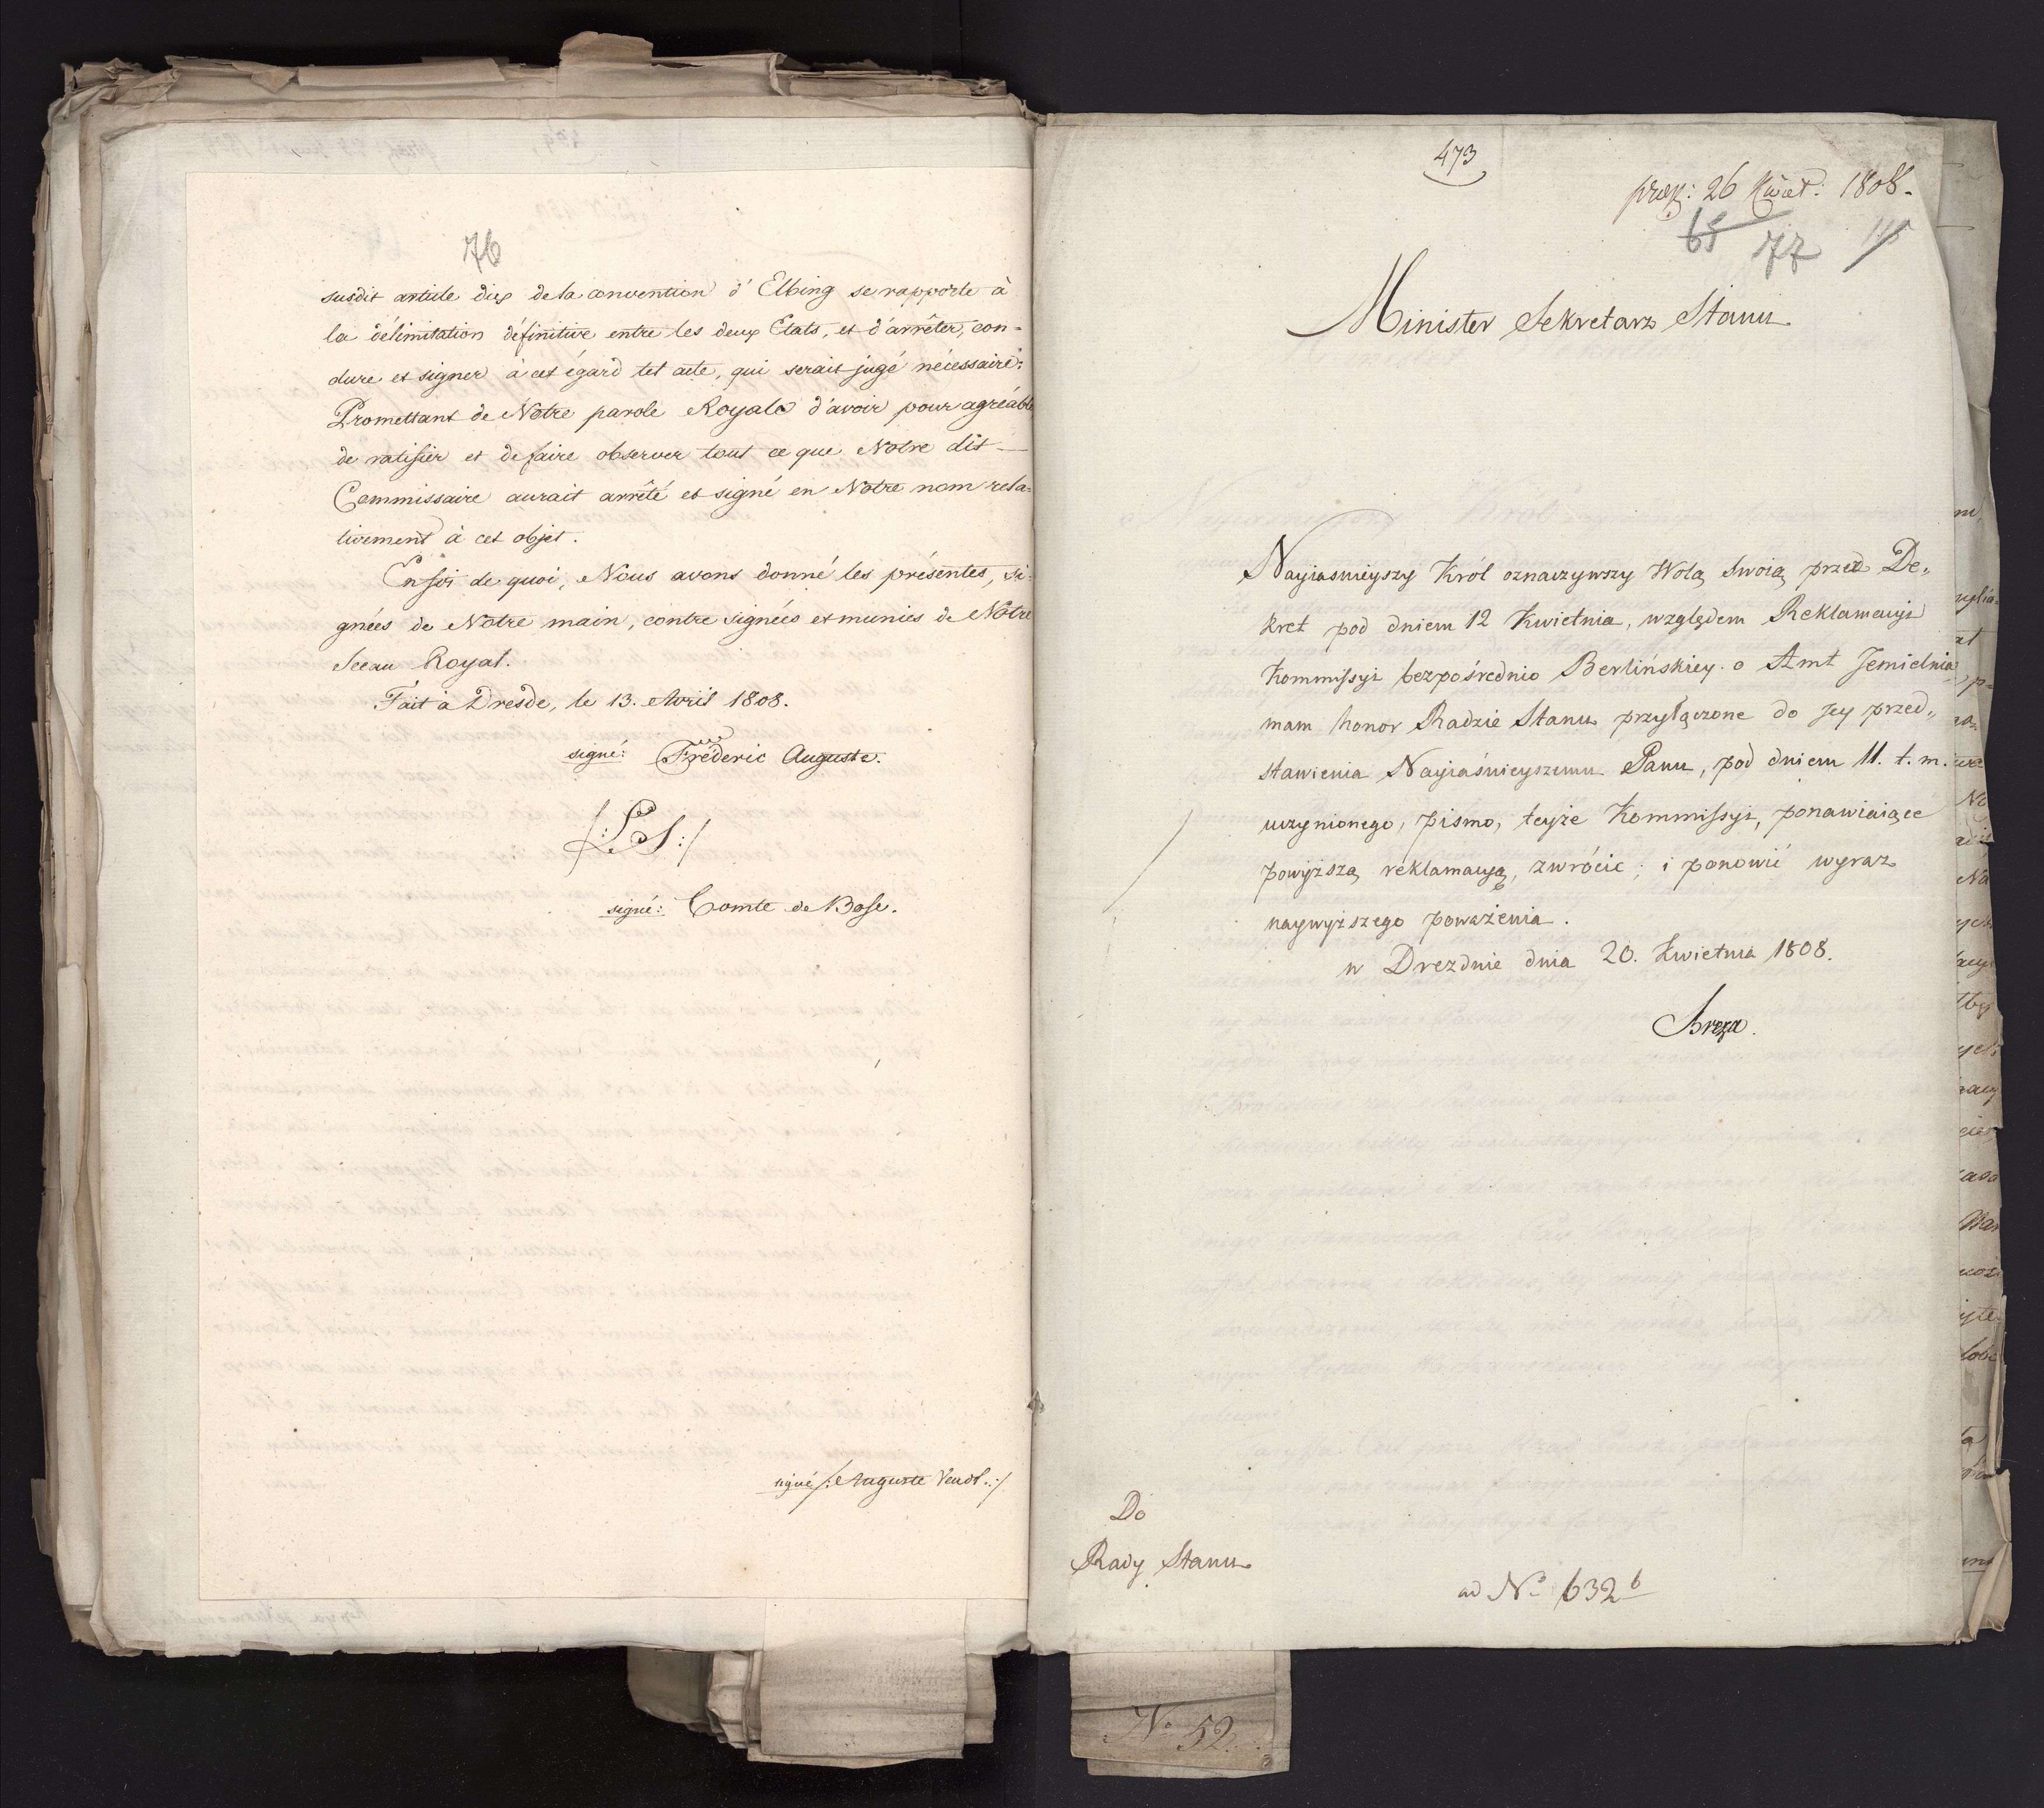 76
susdit article dix de la convention d'Elbing se rapporte à
la délimitation définitive entre les deux Etats, et d'arrêter, con-
clure et signer à cet égard tel acte, qui serait jugé nécessaire:
Promettant de Notre parole Royale d'avoir pour agréable
de ratifier et de faire observer tout ce que Notre dit
Commissaire aurait arrêté et signé en Notre nom rela-
tivement à cet objet.
En foi de quoi, Nous avons donné les présentes, si-
gnées de Notre main, contre signées et munies de Notre
Sceau Royal.
Fait à Dresde, le 13. Avril 1808.
signé: Fréderic Auguste.
/:L.S:/
signé: Comte de Bose.
signé /: Auguste
473
præs: 26 Kwiet: 1808.
65 77
Minister Sekretarz Stanu
Nayiasnieyszy Król oznaczywszy Wolą Swoią przez De„
kret pod dniem 12 Kwietnia, względem Reklamacyi
Kommissyi bezpośrednio Berlińskiey o Amt Jemielnia
mam honor Radzie Stanu przyłączone do Jey przed„
stawienia Nayiaśnieyszemu Panu, pod dniem 11. t. m.
uczynionego, pismo, teyże Kommissyi, ponawiaiące
powyższą reklamacyą, zwrócić; i ponowić wyraz
naywyższego poważenia.
w Dreznie dnia 20. Kwietnia 1808.
Breza.
Do
Rady Stanu
ad No 632 b
No 52.